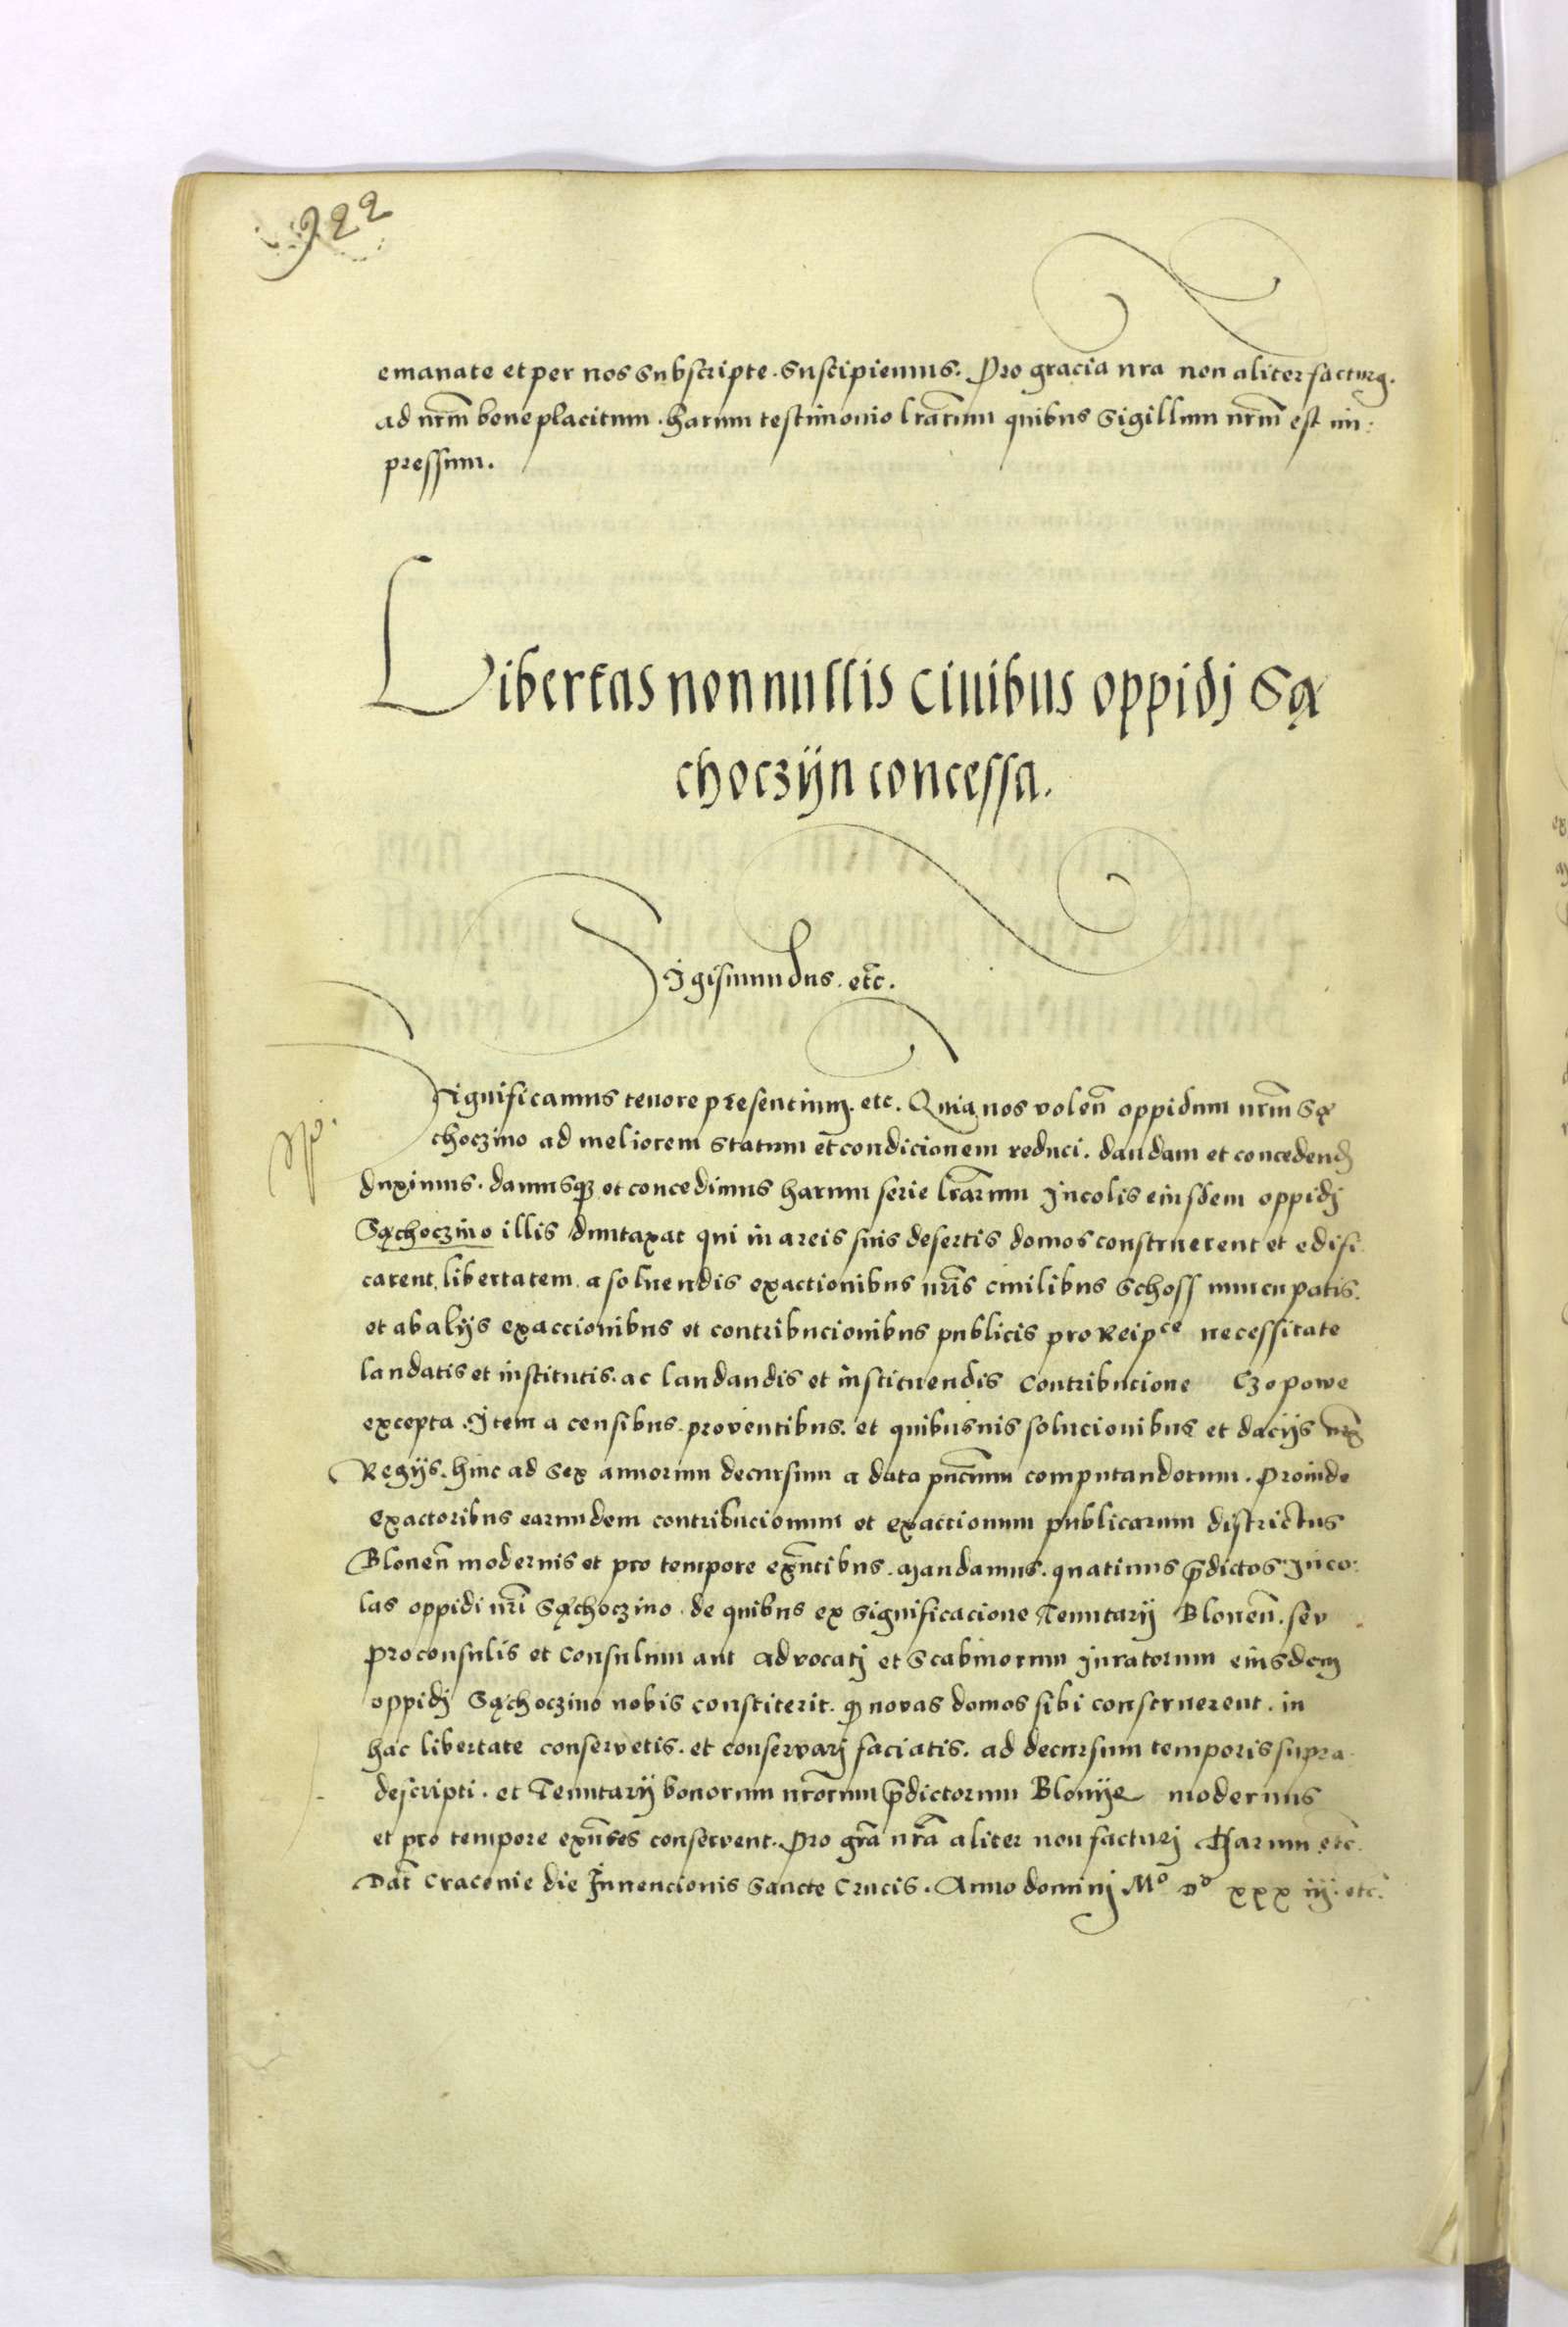 922
emanate et per nos subscripte . suscipiemus. Pro gracia nra non aliter facturq.
ad nrm̄ beneplacitum . harum testimonio lrarum quibus sigillum nrm̄ est im:
pressum.
Libertas nonnullis ciuibus oppidj Są
choczÿn concessa.
Sigismundus . etc̄.
Significamus tenore presentium . etc. Quia nos volen̄ oppidum nrm̄ Są
choczino ad meliorem statum et condicionem reduci . dandam et concedend
duximus . damusqz et concedimus harum serie lrarum Incolis eiusdem oppidj
Sąchoczino illis duntaxat qui in areis suis desertis domos construerent et edifi
carent libertatem a soluendis exactionibus nris̄ ciuilibus Schoss nuncupatis.
et ab alijs exaccionibus et contribucionibus publicis pro Reipce necessitate
laudatis et institutis . ac laudandis et instituendis contribucione Czopowe
excepta . Item a censibus . proventibus . et quibusuis solucionibus et dacijs nr̄is
Regijs . hinc ad sex annorum decursum a data pn̄cium computandorum . Proinde
exactoribus earundem contribucionum et exactionum publicarum districtus
Blonen̄ modernis et pro tempore exn̄tibus . mandamus . quatinus p̄dictos Inco:
las oppidi nri̅ Sąchoczino . de quibus ex significacione Tenutarij Blonen̄ . seu
proconsulis et Consulum aut advocatj et Scabinorum Iuratorum eiusdem
oppidj Sąchoczino nobis constiterit . q novas domos sibi construerent . in
hac libertate conservetis . et conservarj faciatis . ad decursum temporis supra
descripti . et Tenutarij bonorum nrorum p̄dictorum Blonÿe modernus
et pro tempore exn̄tes conservent . Pro gra̅ nra̅ aliter non facturj Harum etc̄
Dat̄ Cracovie die Inuencionis Sancte Crucis . Anno dominj Mo Do xxx iij . etc.